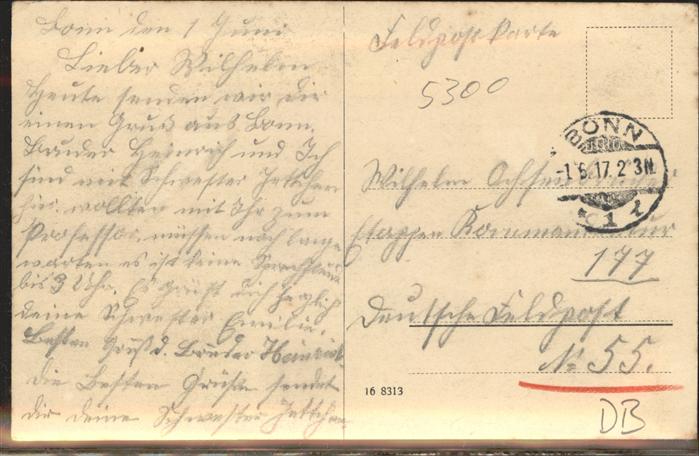 Bonn den 1 Juni
Lieber Wilhelm
Heute senden wir dir
einen Gruß aus Bonn.
Bruder Heinrich und Ich
sind mit Schwester Jettchen
hir wollten mit Ihr zum
Professor, müssen noch lange
warten es ist keine
bis 3 Uhr. Es Grüßt dich herzlich
deine Schwester Emilie.
Besten Gruß d. Bruder Heinrich
die Besten Grüße sendet
dir deine Schwester Jettchen
Feldpostkarte
5300
BONN
-1.6.17.2-3N.
* 1 t
Wilhelm
Etappen Kommandantur
177
Deutsche Feldpost
No 55.
16 8313
DB